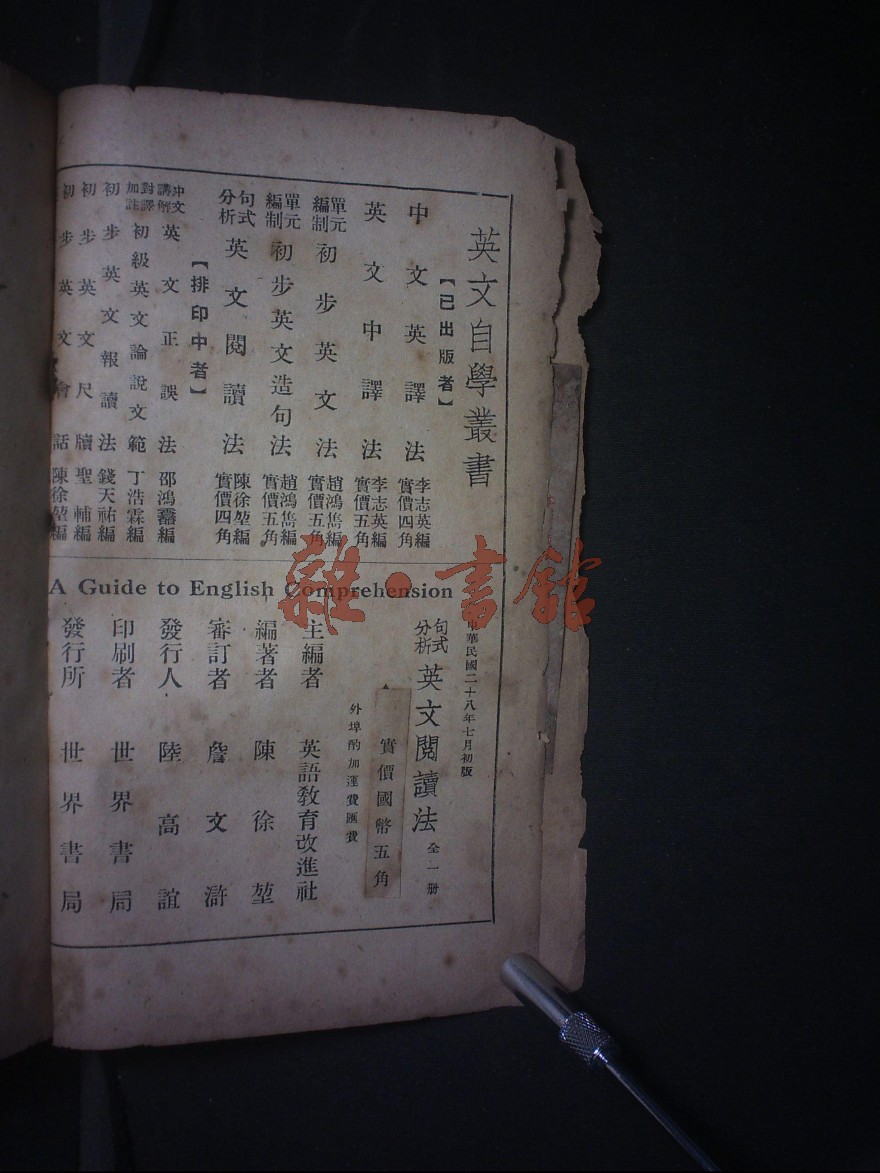 英文自學叢書
【已出版者】
中文英譯法 李志英編 實價四角
英文中譯法 李志英編 實價五角
單元編制 初步英文法 趙鴻雋編 實價五角
單元編制 初步英文造句法 趙鴻雋編 實價五角
句式分析 英文閱讀法 陳徐堃編 實價四角
【排印中者】
中文講解 英文正誤法 邵鴻馨編
對譯加註 初級英文論說文範 丁浩霖編
初步英文報讀法 錢天祐編
初步英文尺牘 聖輔編
初步英文會話 陳徐堃編
A Guide to English Comprehension
中華民國二十八年七月初版
句式分析 英文閱讀法 全一册
實價國幣五角
外埠酌加運費匯費
主編者 英語教育改進社
編著者 陳徐堃
審訂者 詹文滸
發行人 陸高誼
印刷者 世界書局
發行所 世界書局
雜·書館